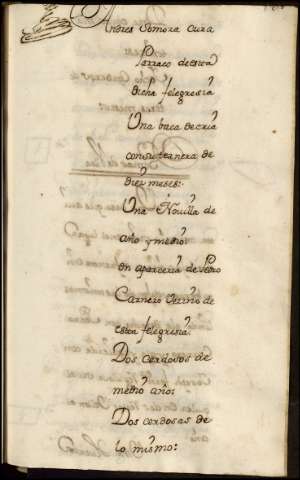 Andres Somora Cura
Parraco de esta
dicha felegresia
Una baca de cria
con su ternera de
diez meses:
Una Novilla de
año y medio
en aparceria de Pedro
Carnero vecino de
esta felegresia:
Dos cerdosos de
medio año:
Dos cerdosas de
lo mismo: